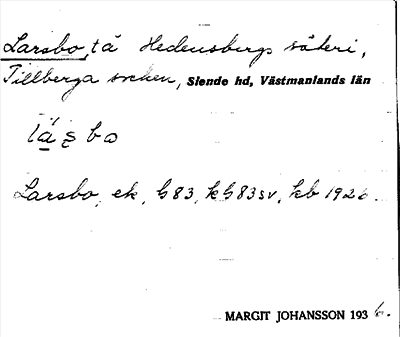 Larsbo, tä Hedensbergs säteri,
Tillberga socken, Siende hd, Västmanlands län
lạ̈ṣbo
Larsbo, ek, G83, kG83sv, kb 1926.
MARGIT JOHANSSON 1936.